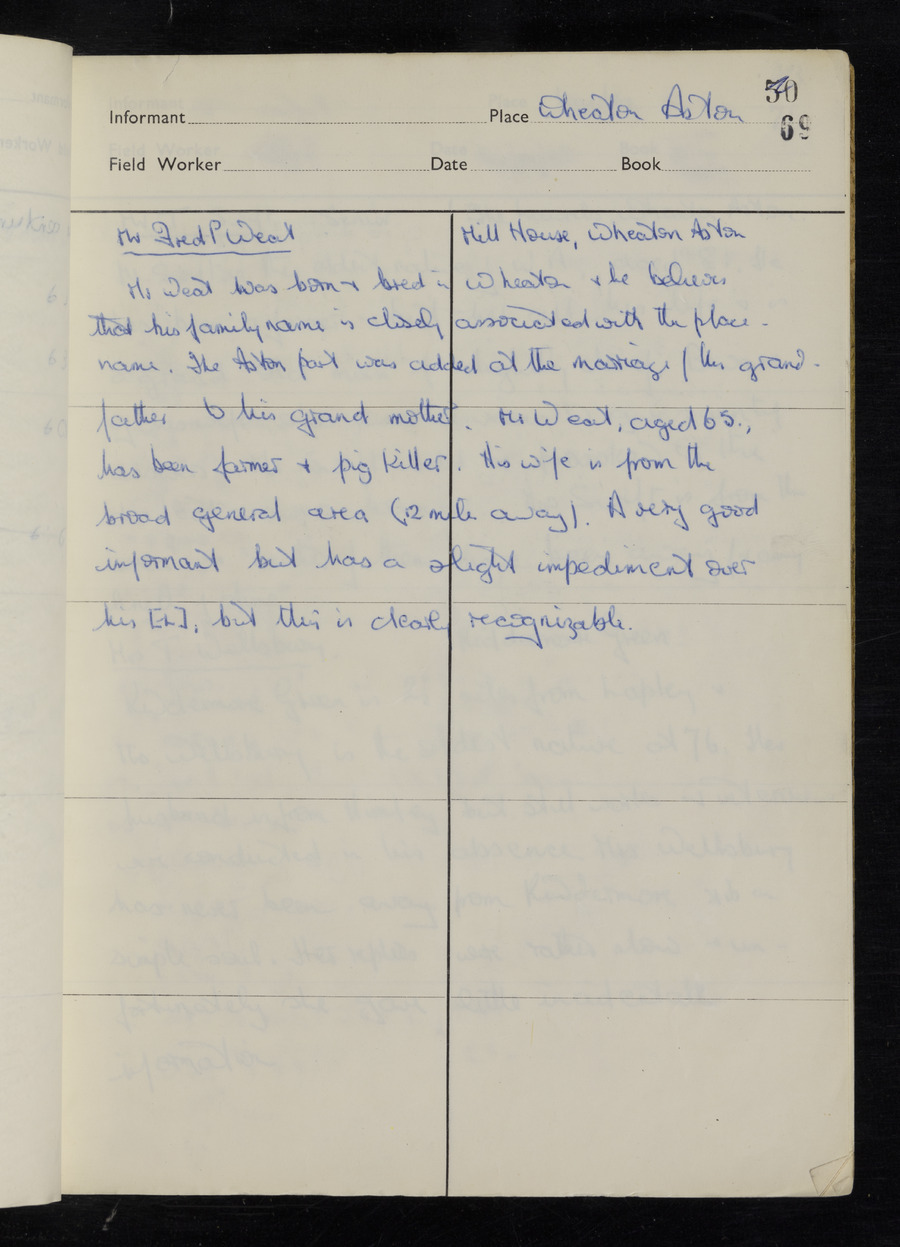 30
69
Informant Place Wheaton Aston
Field Worker Date Book
Mr Fred P Weat Mill House, Wheaton Aston
Mr Weat was born & bred in Wheaton & he believes
that his family name is closely associated with the place-
name. The Aston part was added at the marriage of his grand-
father to his grand mother. Mr Weat, aged 65.,
has been farmer & pig killer. His wife is from the
broad general area (12 mile away). A very good
informant but has a slight impediment over
his [r], but this is clearly recognizable.